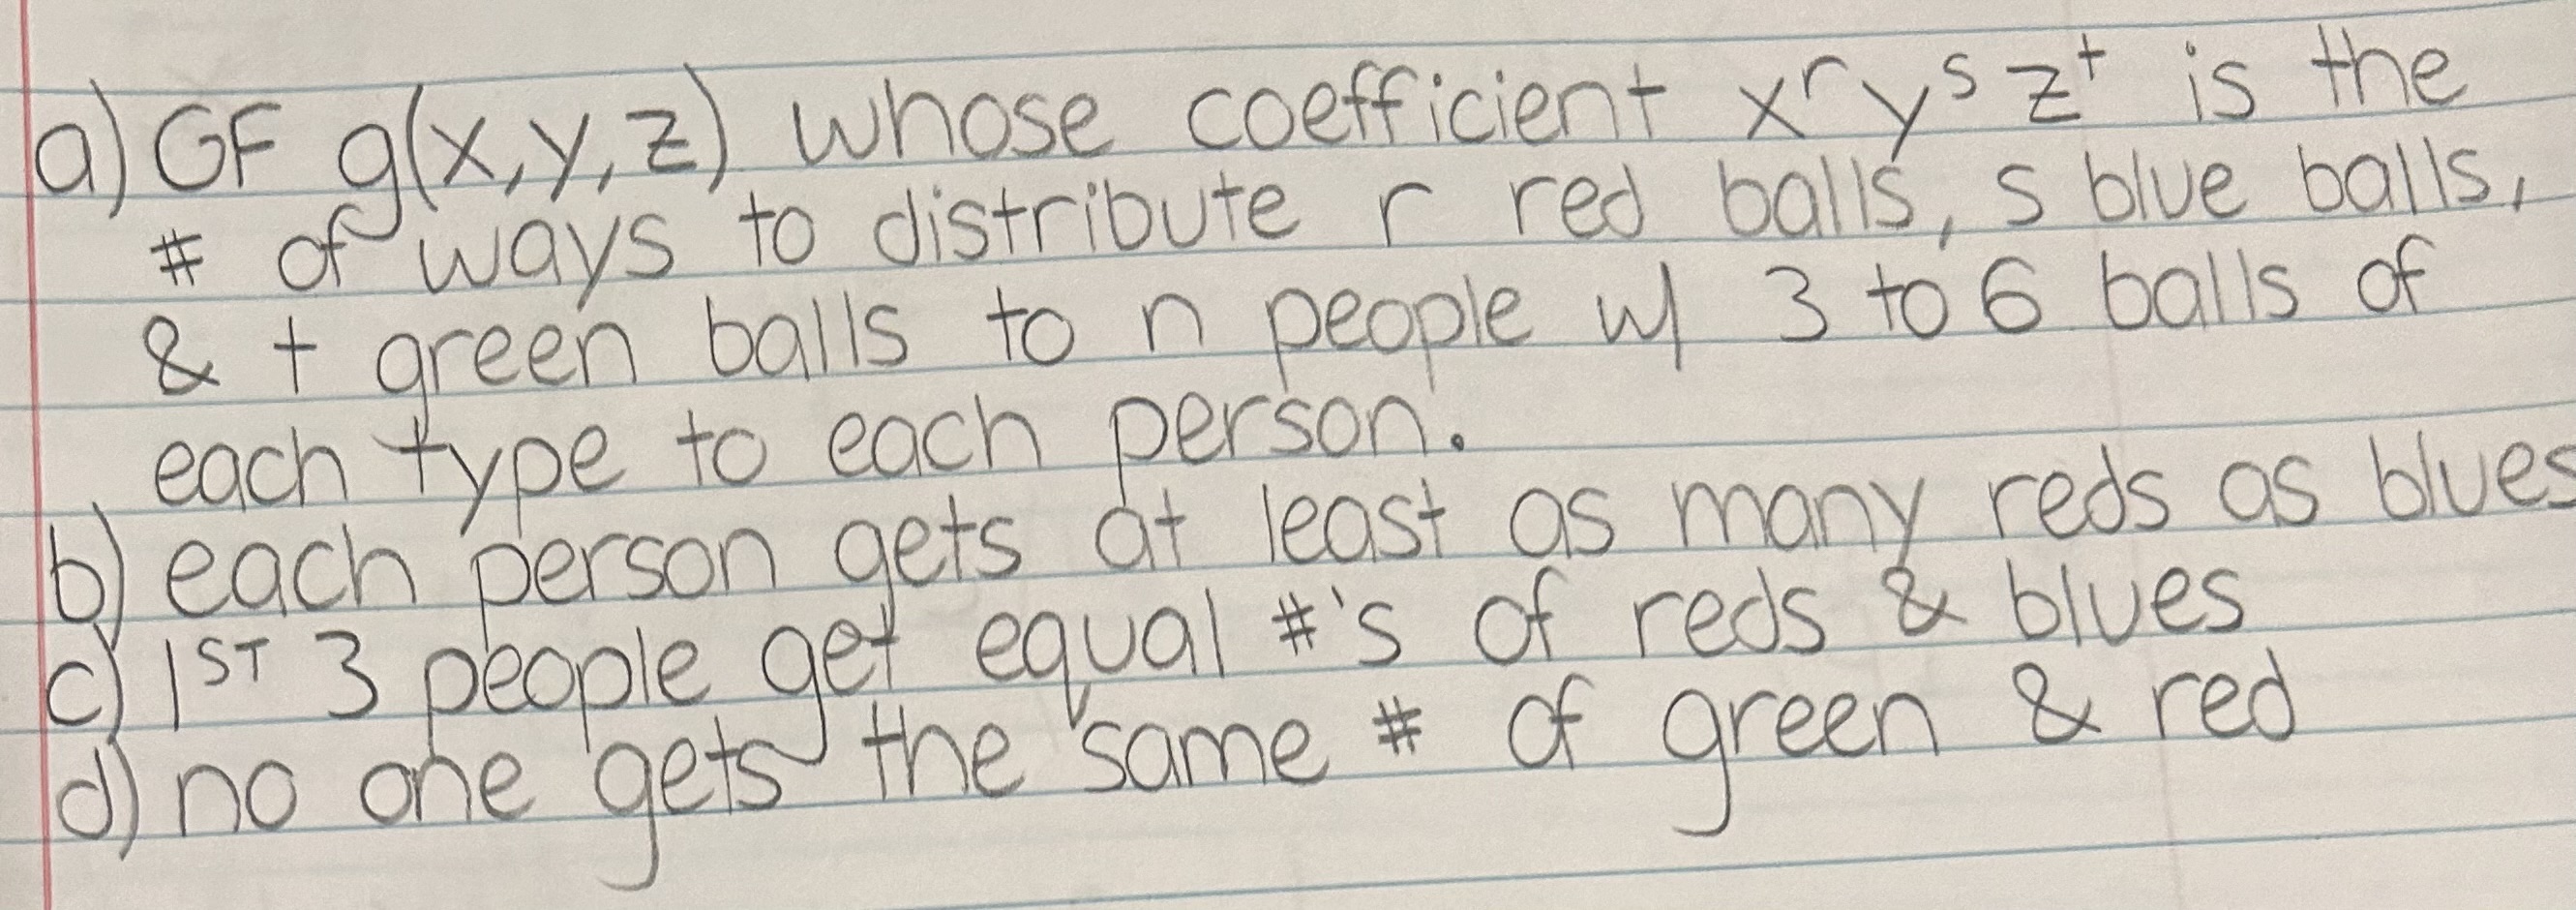 a) GF g(x,y,z) whose coefficient xʳ yˢ zᵗ is the
# of ways to distribute r red balls, s blue balls,
& t green balls to n people w/ 3 to 6 balls of
each type to each person.
b) each person gets at least as many reds as blues
c) 1ST 3 people get equal #'s of reds & blues
d) no one gets the same # of green & red